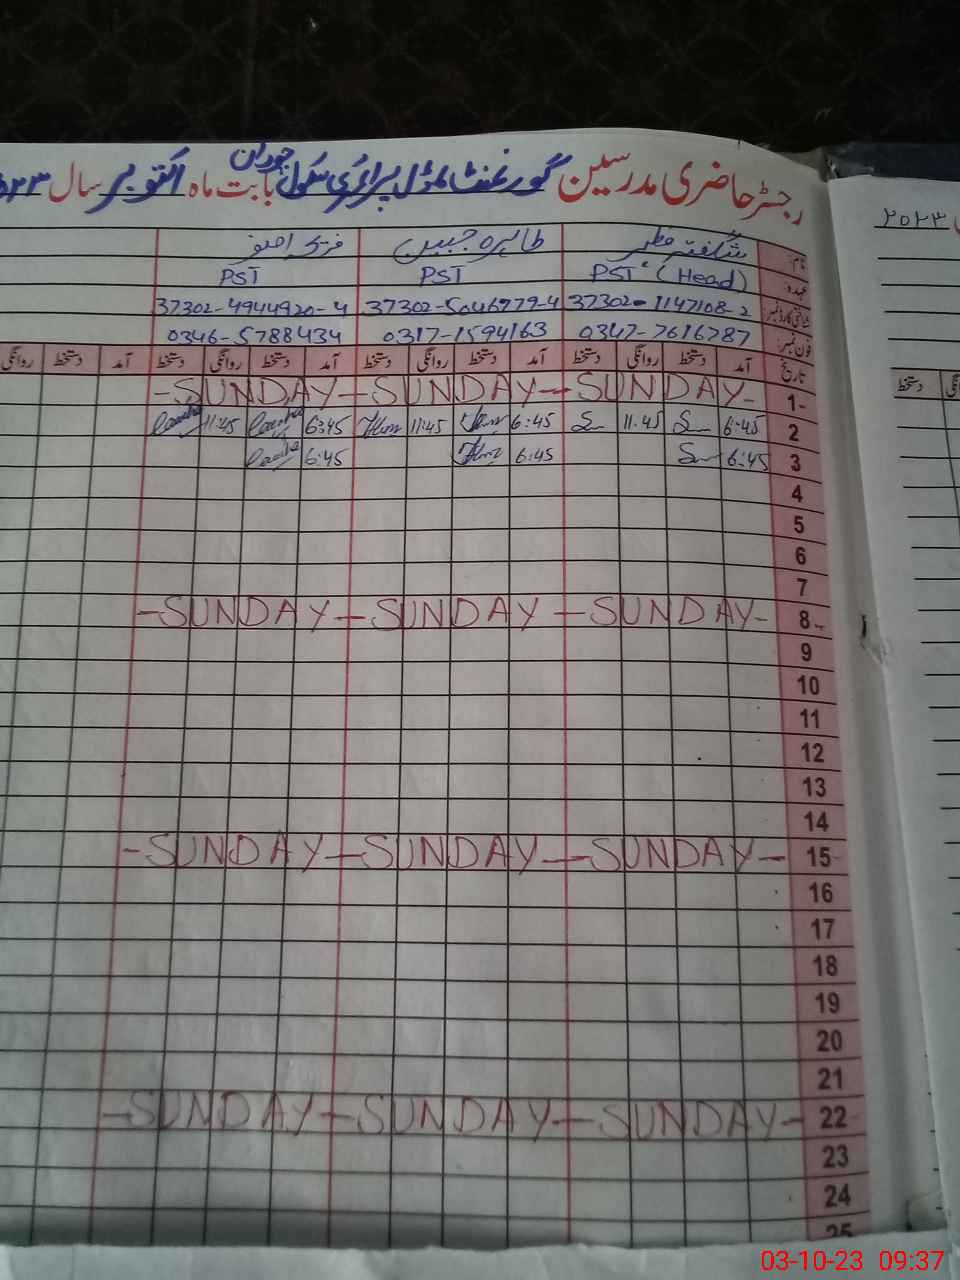 رجسٹر حاضری مدرسین گورنمنٹ ماڈل پرائمری سکول جودان بابت ماہ اکتوبر سال
۲۰۲۳
نام: شگفتہ طاہرہ جبین
عہدہ: PST (Head) PST PST
شناختی کارڈ نمبر: 37302-1147108-2 37302-5046779-4 37302-4944920-4
فون نمبر: 0347-7616787 0317-1594163 0346-5788434
تاریخ آمد دستخط روانگی دستخط آمد دستخط روانگی دستخط آمد دستخط روانگی دستخط آمد دستخط روانگی
دستخط
1- -SUNDAY-SUNDAY-SUNDAY-
2 6:45 11:45 6:45 11:45 6:45 11:45
3 6:45 6:45 6:45
4
5
6
7
8- -SUNDAY-SUNDAY-SUNDAY-
9
10
11
12
13
14
15- -SUNDAY-SUNDAY-SUNDAY-
16
17
18
19
20
21
22- -SUNDAY-SUNDAY-SUNDAY-
23
24
25
03-10-23 09:37